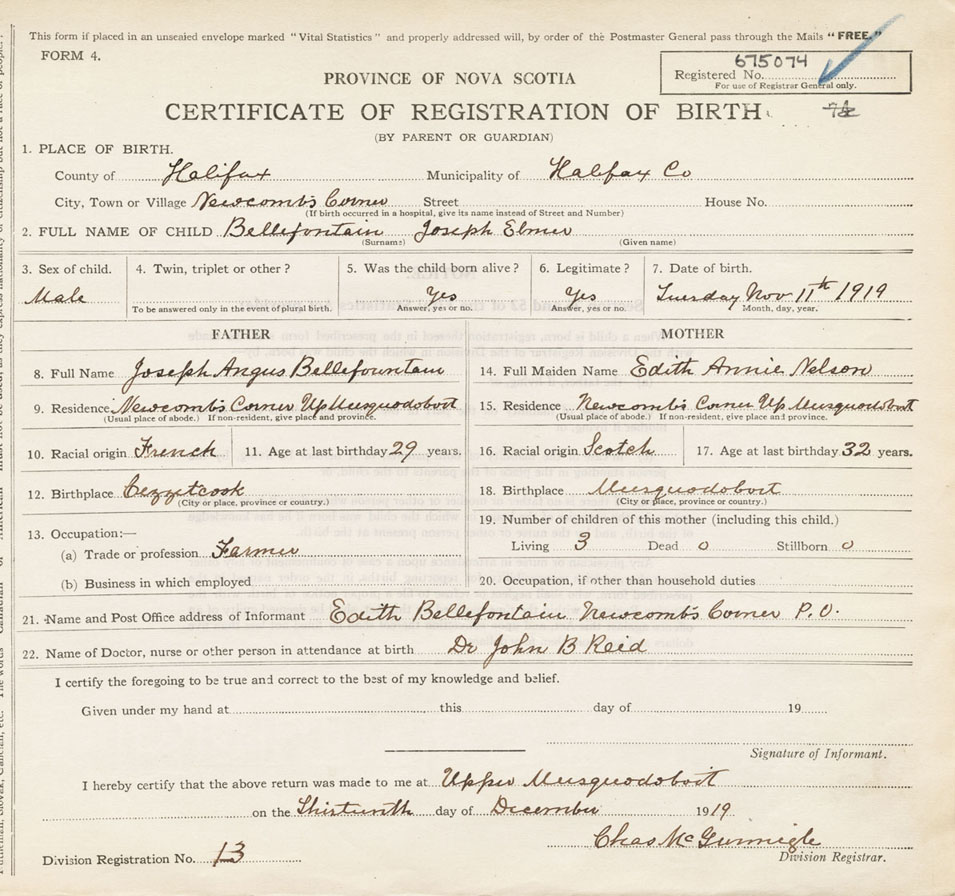 This form if placed in an unsealed envelope marked "Vital Statistics" and properly addressed will, by order of the Postmaster General pass through the Mails "FREE."
FORM 4.
675074
Registered No.
For use of Registrar General only.
PROVINCE OF NOVA SCOTIA
CERTIFICATE OF REGISTRATION OF BIRTH
(BY PARENT OR GUARDIAN)
1. PLACE OF BIRTH.
County of Halifax Municipality of Halifax Co
City, Town or Village Newcomb's Corner Street House No.
(If birth occurred in a hospital, give its name instead of Street and Number)
2. FULL NAME OF CHILD Bellefontain Joseph Elmer
(Surname) (Given name)
3. Sex of child. 4. Twin, triplet or other? 5. Was the child born alive? 6. Legitimate? 7. Date of birth.
Male Yes Yes Tuesday Nov 11th 1919
To be answered only in the event of plural birth. Answer, yes or no. Answer, yes or no. Month, day, year.
FATHER MOTHER
8. Full Name Joseph Angus Bellefountain 14. Full Maiden Name Edith Annie Nelson
9. Residence Newcomb's Corner Up Musquodoboit 15. Residence Newcomb's Corner Up Musquodoboit
(Usual place of abode.) If non-resident, give place and province. (Usual place of abode.) If non-resident, give place and province.
10. Racial origin French 11. Age at last birthday 29 years. 16. Racial origin Scotch 17. Age at last birthday 32 years.
12. Birthplace Cezzetcook 18. Birthplace Musquodoboit
(City or place, province or country.) (City or place, province or country.)
13. Occupation:— 19. Number of children of this mother (including this child.)
(a) Trade or profession Farmer Living 3 Dead 0 Stillborn 0
(b) Business in which employed 20. Occupation, if other than household duties
21. Name and Post Office address of Informant Edith Bellefontain Newcomb's Corner P.O.
22. Name of Doctor, nurse or other person in attendance at birth Dr John B Reid
I certify the foregoing to be true and correct to the best of my knowledge and belief.
Given under my hand at this day of 19
Signature of Informant.
I hereby certify that the above return was made to me at Upper Musquodoboit
on the Thirteenth day of December 1919
Chas McGunnigle
Division Registration No. 13 Division Registrar.